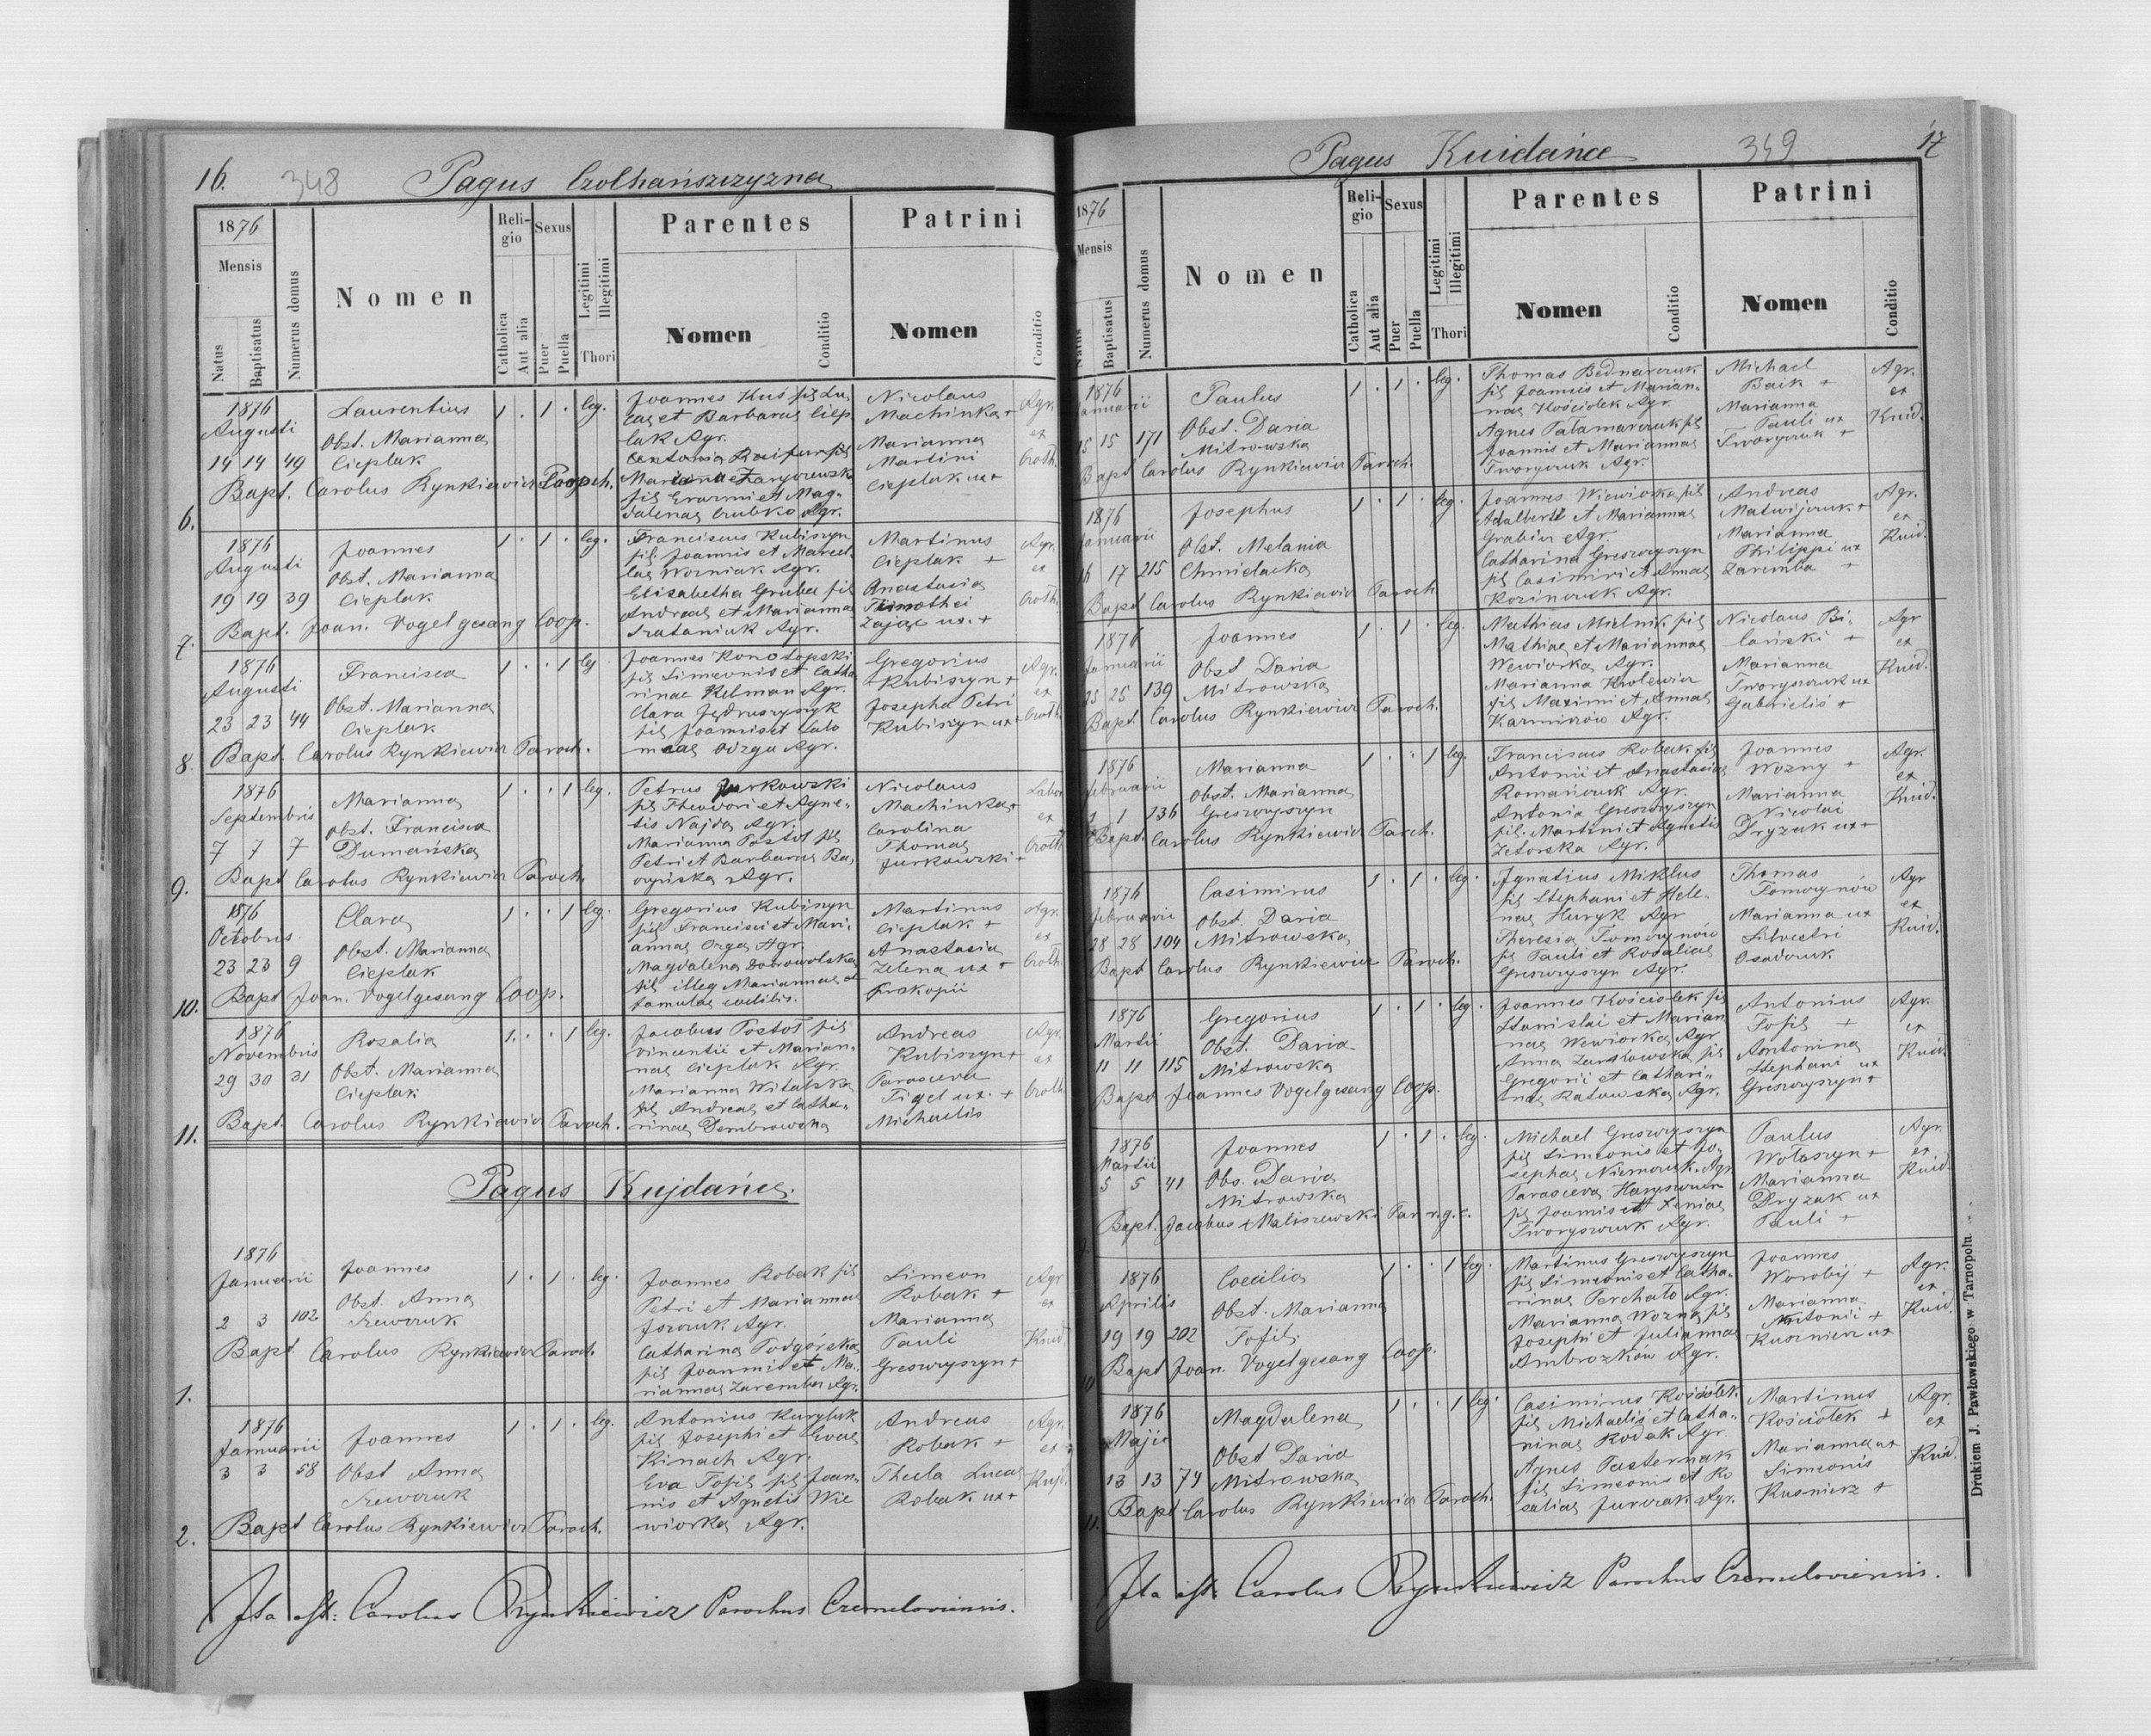 16. 348 Pagus Czolhańszczyzna
1876
Mensis
Natus
Baptisatus
Numerus domus
Nomen
Religio
Catholica
Aut alia
Sexus
Puer
Puella
Legitimi
Illegitimi
Thori
Parentes
Nomen
Conditio
Patrini
Nomen
Conditio
6.
1876
Augusti
14 14 49
Laurentius
Obst. Marianna
Cieplak
1 . 1 . leg.
Joannes Kuś fil. Lu-
cae et Barbarae Ciep
lak Agr.
Antonia
fil. Erazmi et Mag-
dalenae Agr.
Nicolaus
Machinka +
Marianna
Martini
Cieplak ux +
Agr.
ex
Czolh.
Bapt. Carolus Rynkiewicz Paroch.
7.
1876
Augusti
19 19 39
Joannes
Obst. Marianna
Cieplak
1 . 1 . leg.
Franciscus Kubiszyn
fil. Joannis et Marcel-
lae Woźniak Agr.
Elisabetha Gruba fil
Andreae et Marianna
Agr.
Martinus
Cieplak +
Anastasia
Timothei
Zając ux. +
Agr.
ex
Czolh.
Bapt. Joan. Vogelgesang Coop.
8.
1876
Augusti
23 23 44
Francisca
Obst. Marianna
Cieplak
1 . . 1 leg
Joannes Konotopski
fil Simeonis et Catha
rinae Kelman Agr.
Clara Jędruszyszyk
fil Joannis et Salo
meae Agr.
Gregorius
Kubiszyn +
Josepha Petri
Kubiszyn ux +
Agr.
ex
Czolh.
Bapt. Carolus Rynkiewicz Paroch.
9.
1876
Septembris
7 7 7
Marianna
Obst. Francisca
Dumańska
1 . . 1 leg.
Petrus Jurkowski
fil Theodori et Agne-
tis Najda Agr.
Marianna Postół fil
Petri et Barbarae Ba-
Agr.
Nicolaus
Machinka +
Carolina
Thomae
Jurkowski +
Labor
ex
Czolh
Bapt Carolus Rynkiewicz Paroch.
10.
1876
Octobris
23 23 9
Clara
Obst. Marianna
Cieplak
1 . . 1 leg.
Gregorius Kubiszyn
fil Francisci et Mari-
annae Agr.
Magdalena Dobrowolska
fil illeg Mariannae
famulae coelibis.
Martinus
Cieplak +
Anastasia
Zelena ux +
Prokopii
Agr.
ex
Czolh.
Bapt Joan. Vogelgesang Coop.
11.
1876
Novembris
29 30 31
Rosalia
Obst. Marianna
Cieplak
1. . . 1 leg.
Jacobus Postół fil
Vincentii et Marian-
nae Cieplak Agr.
Marianna Witalska
fil Andreae et Catha-
rinae Dembrowska
Andreas
Kubiszyn +
Parasceva
Figel ux. +
Michaelis
Agr.
ex
Czolh
Bapt. Carolus Rynkiewicz Paroch.
Pagus Kujdańce.
1.
1876
Januarii
2 3 102
Joannes
Obst Anna
Szewczuk
1 . 1 . leg.
Joannes Robak fil
Petri et Mariannae
Agr.
Catharina Podgórska
fil Joannis et Ma-
riannae Zaremba Agr.
Simeon
Robak +
Marianna
Pauli
Greszczyszyn +
Agr
ex
Kuid.
Bapt Carolus Rynkiewicz Paroch.
2.
1876
Januarii
3 3 58
Joannes
Obst Anna
Szewczuk
1 . 1 . leg.
Antonius Kuryluk
fil Josephi et Evae
Kinach Agr.
Eva Tofil fil Joan-
nis et Agnetis Wie
wiorka Agr.
Andreas
Robak +
Thecla Lucae
Robak ux +
Agr.
ex
Kujd.
Bapt Carolus Rynkiewicz Paroch.
Ita est: Carolus Rynkiewicz Parochus Czemeloviensis.
Pagus Kuidańce 349 17
1876
Mensis
Natus
Baptisatus
Numerus domus
Nomen
Religio
Catholica
Aut alia
Sexus
Puer
Puella
Legitimi
Illegitimi
Thori
Parentes
Nomen
Conditio
Patrini
Nomen
Conditio
1876
Januarii
15 15 171
Paulus
Obst. Daria
Mitrowska
1 . 1 . leg.
Thomas Bednarczuk
fil Joannis et Marian-
nae Kościolek Agr.
Agnes Palamarczuk fil
Joannis et Mariannae
Tworyczuk Agr.
Michael
Baik +
Marianna
Pauli ux
Tworyczuk +
Agr.
ex
Kuid.
Bapt Carolus Rynkiewicz Paroch.
1876
Januarii
16 17 215
Josephus
Obst. Melania
Chmielacka
1 . 1 . leg.
Joannes Wiewiorka fil
Adalberti et Mariannae
Grabier Agr.
Catharina Greszczyszyn
fil Casimiri et Annae
Agr.
Andreas
Matwijczuk +
Marianna
Philippi ux
Zaremba +
Agr.
ex
Kuid.
Bapt Carolus Rynkiewicz Paroch
1876
Januarii
25 25 139
Joannes
Obst Daria
Mitrowska
1 . 1 . leg.
Mathias Mielnik fil
Mathiae et Mariannae
Wewiorka Agr.
Marianna Krolewicz
fil Maximi et Annae
Agr.
Nicolaus Bi-
lański +
Marianna
Tworyszczuk ux
Gabrielis +
Agr
ex
Kuid.
Bapt. Carolus Rynkiewicz Paroch.
1876
Februarii
1 1 236
Marianna
Obst. Marianna
Greszczyszyn
1 . . 1 leg.
Franciscus Robak fil
Antonii et Anastasiae
Romańczuk Agr.
Antonia Greszczyszyn
fil. Martini et Agnetis
Zetorska Agr.
Joannes
Wozny +
Marianna
Nicolai
Dryzak ux +
Agr.
ex
Kuid.
Bapt. Carolus Rynkiewicz Paroch.
1876
Februarii
28 28 104
Casimirus
Obst Daria
Mitrowska
1 . 1 . leg.
Ignatius Miklus
fil Stephani et Hele-
nae Huryk Agr
Theresia Tomczynów
fil Pauli et Rosaliae
Greszczyszyn Agr.
Thomas
Tomczynów
Marianna ux
Silvestri
Osadczuk
Agr
ex
Kuid.
Bapt Carolus Rynkiewicz Paroch.
1876
Martii
11 11 115
Gregorius
Obst. Daria
Mitrowska
1 . 1 . leg.
Joannes Kościolek fil
Stanislai et Marian
nae Wewiorka Agr
Anna
Gregorii et Cathari-
nae Agr.
Antonius
Tofil +
Antonina
Stephani ux
Greszczyszyn +
Agr.
ex
Kuid.
Bapt Joannes Vogelgesang Coop.
1876
Martii
5 5 41
Joannes
Obs. Daria
Mitrowska
1 . 1 . leg.
Michael Greszczyszyn
fil Simeonis et Jo-
sephae Niemczuk Agr
Parasceva
fil Joannis et Xeniae
Tworyszczuk Agr.
Paulus
Wołoszyn +
Marianna
Dryzak ux
Pauli +
Agr.
ex
Kuid.
Bapt. Jacobus Maliszewski Par r.g.c.
1876
Aprilis
19 19 202
Coecilia
Obst. Marianna
Tofil.
1 . . 1 leg.
Martinus Greszczyszyn
fil Simeonis et Catha-
rinae Agr.
Marianna Wozna fil
Josephi et Julianna
Ambrozków Agr.
Joannes
Worobij +
Marianna
Antonii +
Kuśnierz ux
Agr.
ex
Kuid.
Bapt Joan. Vogelgesang Coop.
11.
1876
Maji
13 13 74
Magdalena
Obst Daria
Mitrowska
1 . . 1 leg.
Casimirus Kościółek
fil Michaelis et Catha-
rinae Rodak Agr.
Agnes Pasternak
fil Simeonis et Ro
saliae Jurczak Agr.
Martinus
Kościółek +
Marianna ux
Simeonis
Kuśnierz +
Agr.
ex
Kuid.
Bapt Carolus Rynkiewicz Paroch.
Ita est: Carolus Rynkiewicz Parochus Czemeloviensis.
Drukiem J. Pawłowskiego w Tarnopolu.